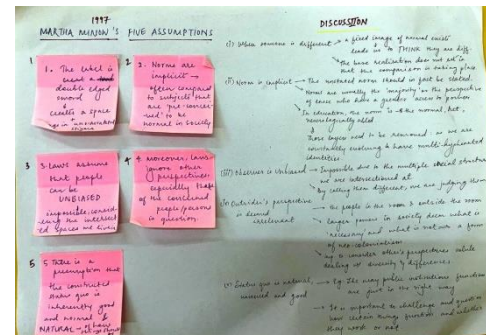 1997
MARTHA MINOW'S FIVE ASSUMPTIONS
1
1. The label is
double edged
sword
creates a space
2
2. Norms are
implicit →
often compared
to subjects that
are
to be
normal in society
3
3. Laws assume
that people
can be
UNBIASED
impossible,
we live
4
4. Moreover, laws
ignore other
perspectives
especially
of the concerned
people/persons
in question
5
5. There is a
presumption that
the constructed
status quo is
inherently good
and normal &
NATURAL
DISCUSSION
(i) When someone is different → a fixed image of normal exists
leads us to THINK they are diff.
the base realization does not
that the comparison is taking place
(ii) Norm is implicit → the unstated norm should in fact be stated.
Norms are usually the 'majority' or the perspective
of ones who have a greater access to power
In education, the norm is the normal,
neurologically abled
These layers need to be removed as we are
constantly evolving to have multi-
identities
(iii) observer is unbiased → Impossible due to the multiple social
we are intersectional at
By calling them different, we are judging them
Outsider's perspective
is deemed
irrelevant
the people in the room & outside the room
larger powers in society deem what is
necessary and what is not as a form
of neo-colonialism
to consider other's perspectives while
dealing w diversity & differences
(v) Status quo is natural,
and good
Eg. The way public institutions function
are just in the right way
Is important to challenge and question
how certain things function and whether
they work or not